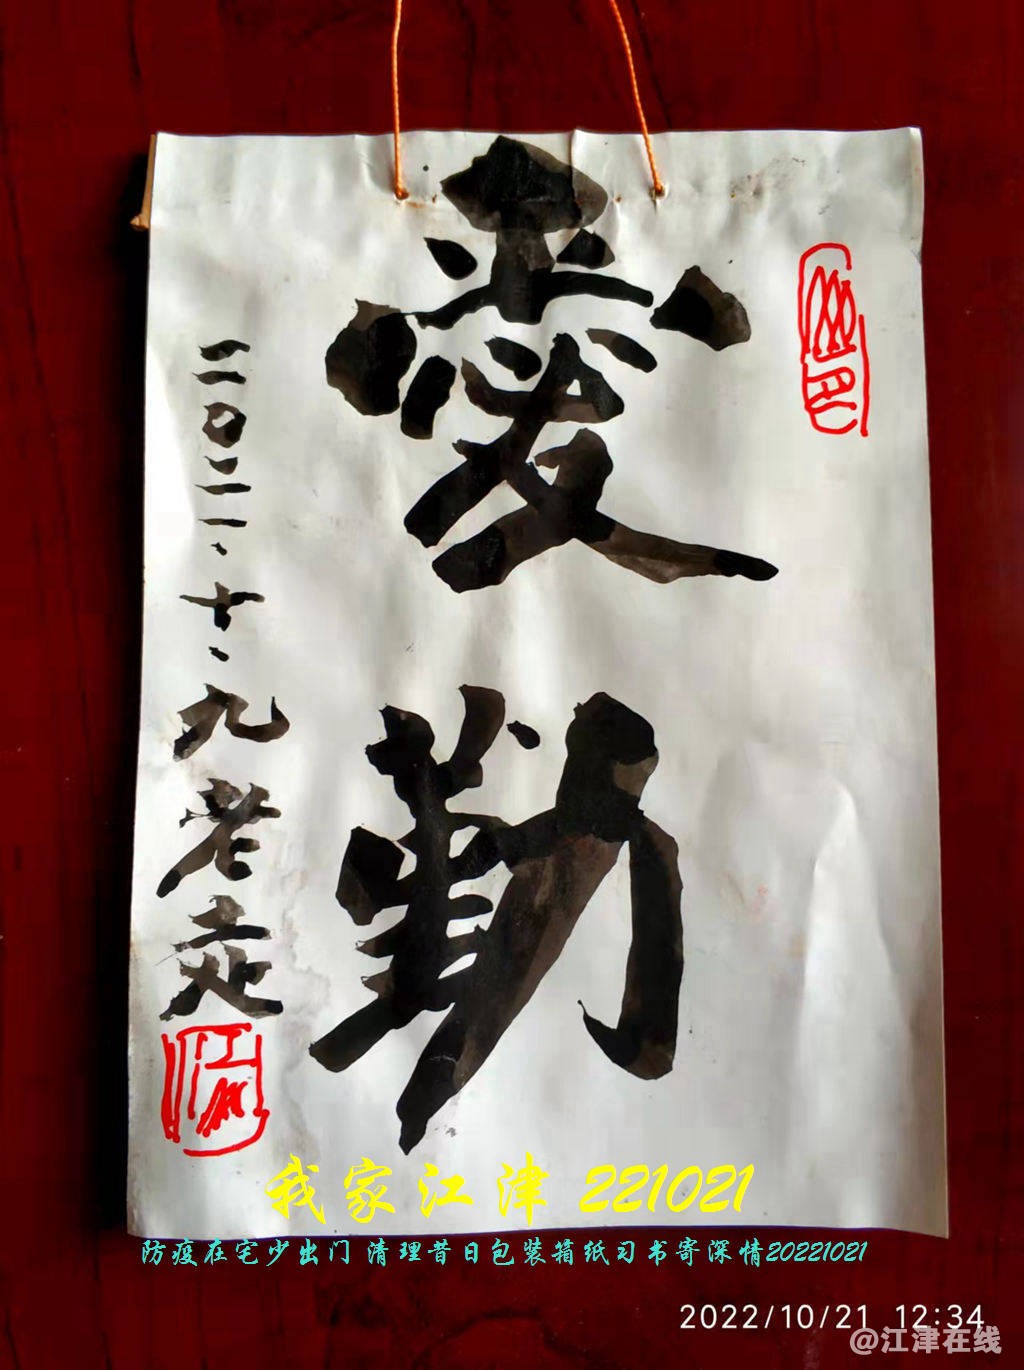 愛勤
二〇二一、十、九老走
我家江津 221021
防疫在宅少出门 清理昔日包装箱纸习书寄深情20221021
2022/10/21 12:34
@江津在线